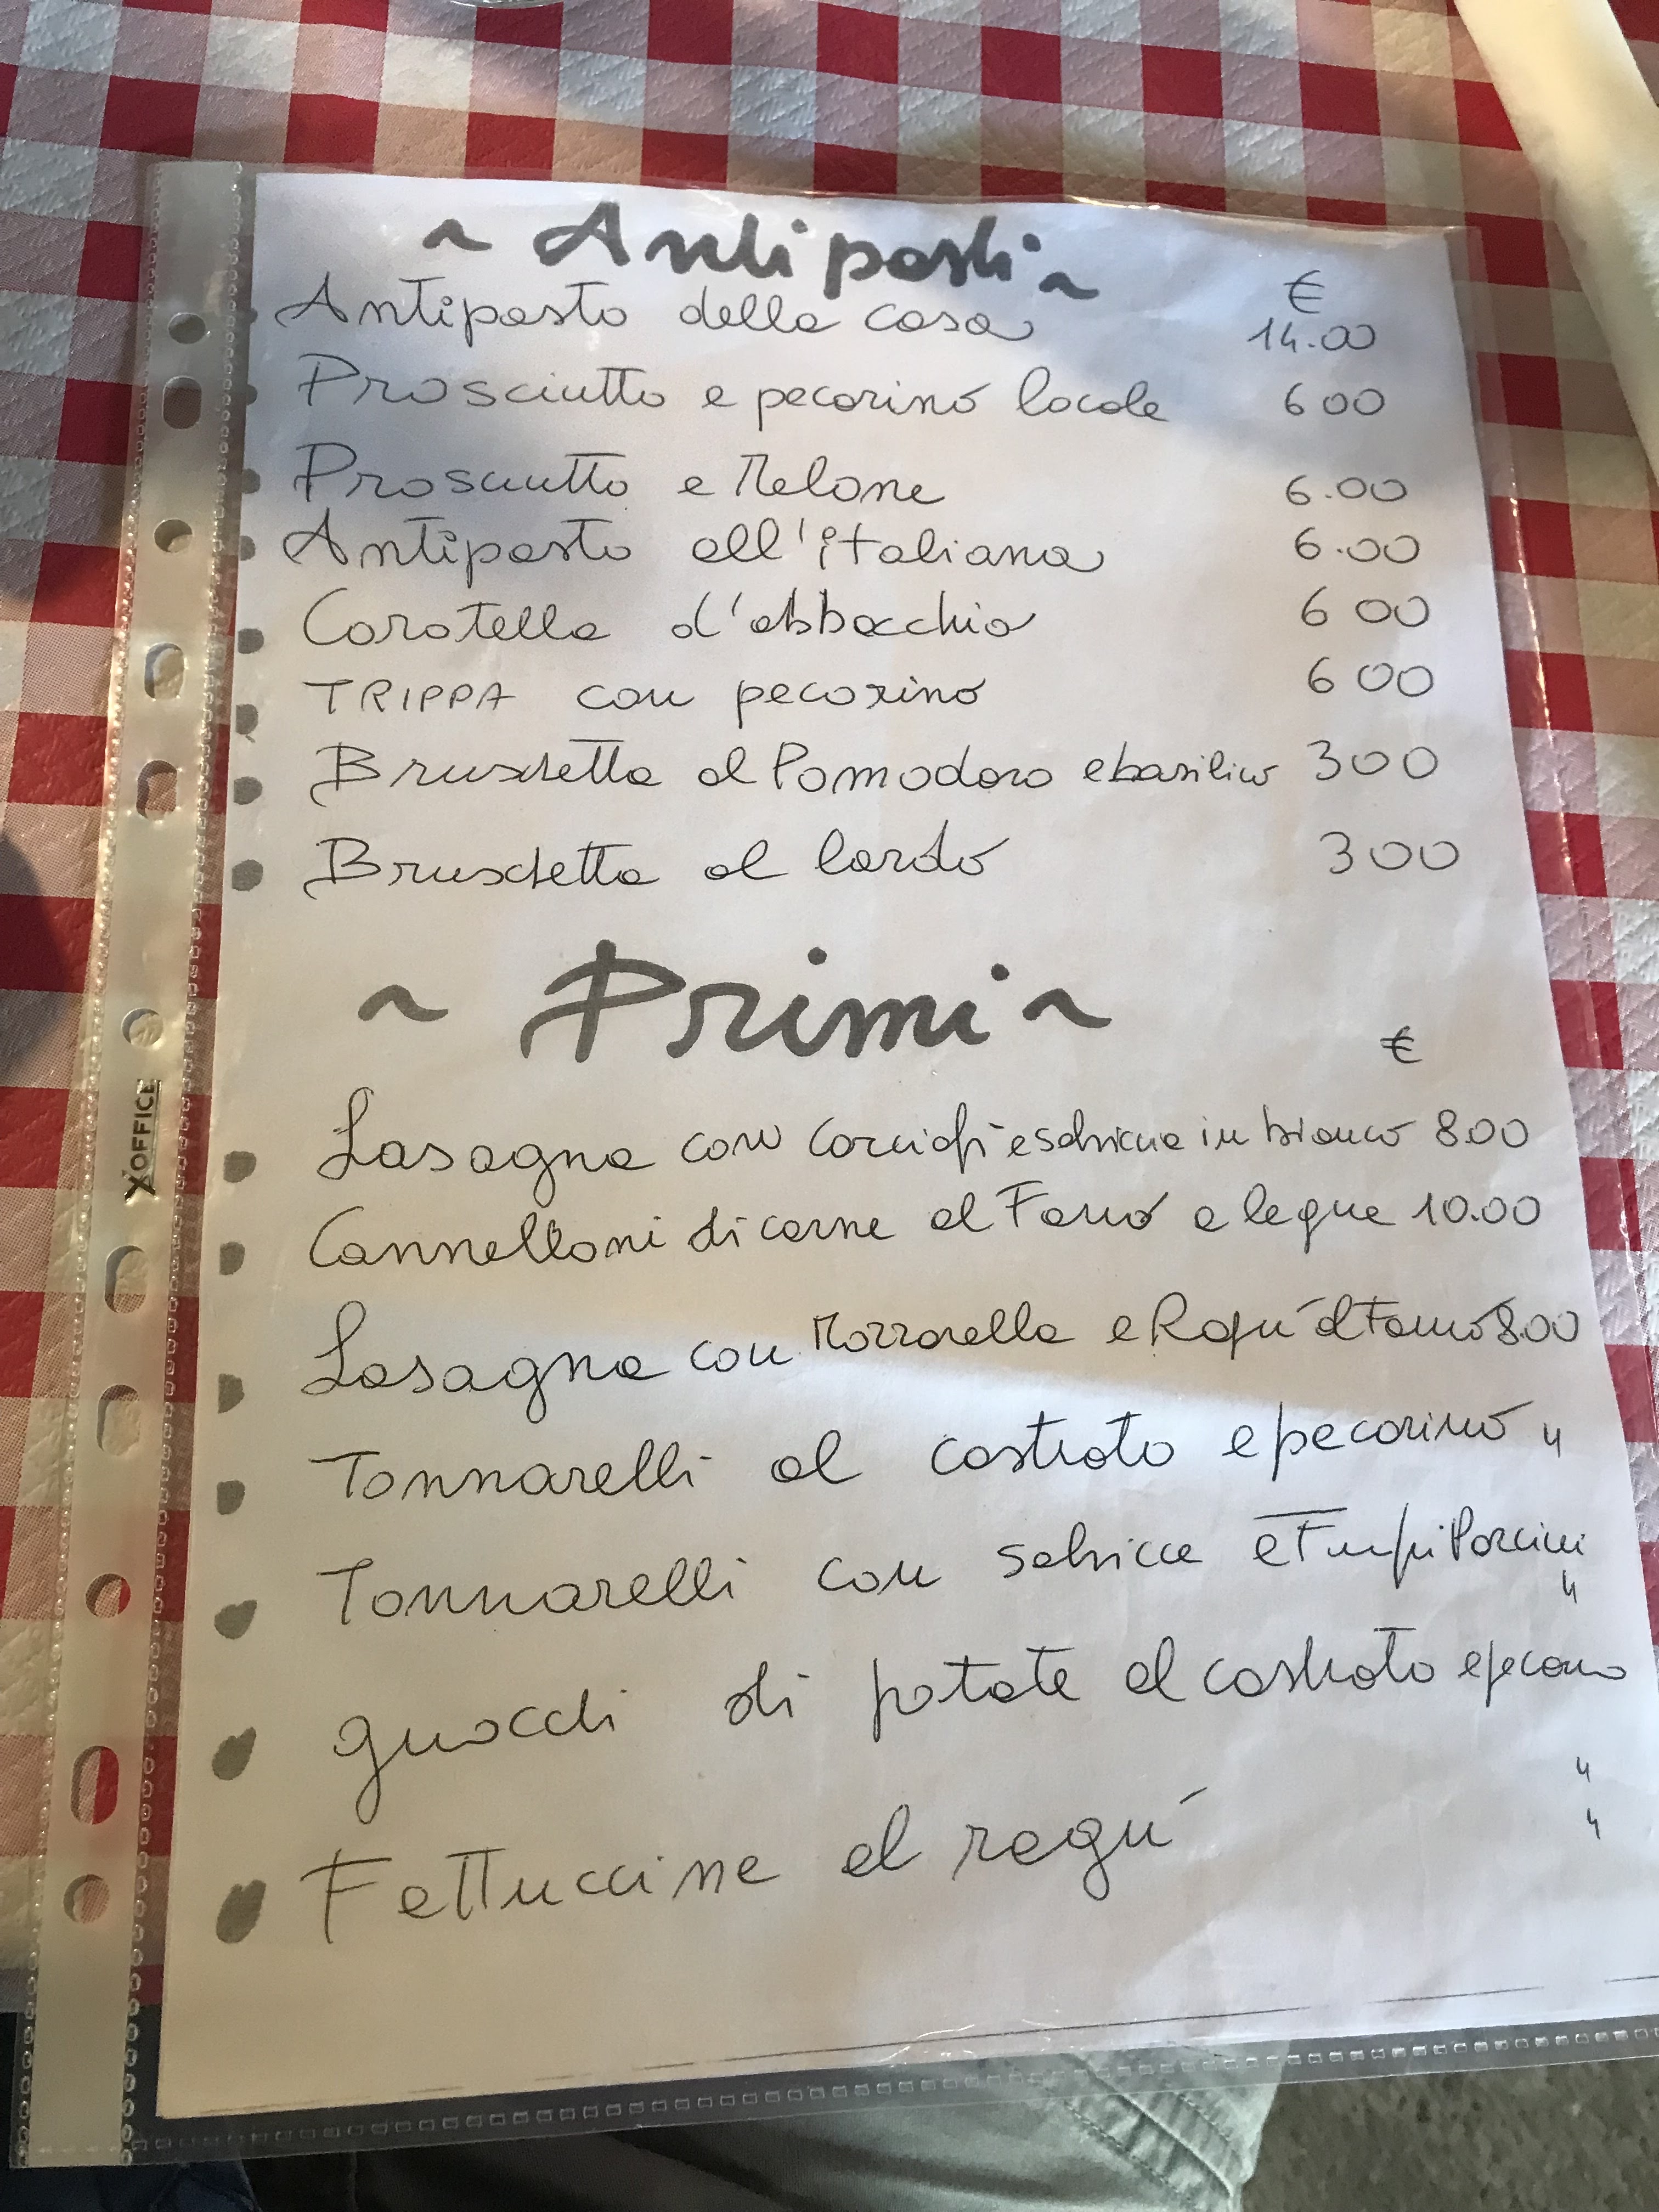 ~ Antipasti ~
€
Antipasto della casa 14.00
Prosciutto e pecorino locale 6 00
Prosciutto e Melone 6.00
Antipasto all'italiana 6.00
Coratella d'abbacchio 6 00
TRIPPA con pecorino 6 00
Bruschetta al Pomodoro e basilico 3 00
Bruschetta al lardo 3 00
~ Primi ~
€
Lasagna con Carciofi e salsiccia in bianco 8.00
Cannelloni di carne al Forno a legna 10.00
Lasagna con Mozzarella e Ragú al Forno 8.00
Tonnarelli al castrato e pecorino "
Tonnarelli con salsicce e Funghi Porcini "
gnocchi di patate al castrato e pecorino "
Fettuccine al ragú "
XOFFICE